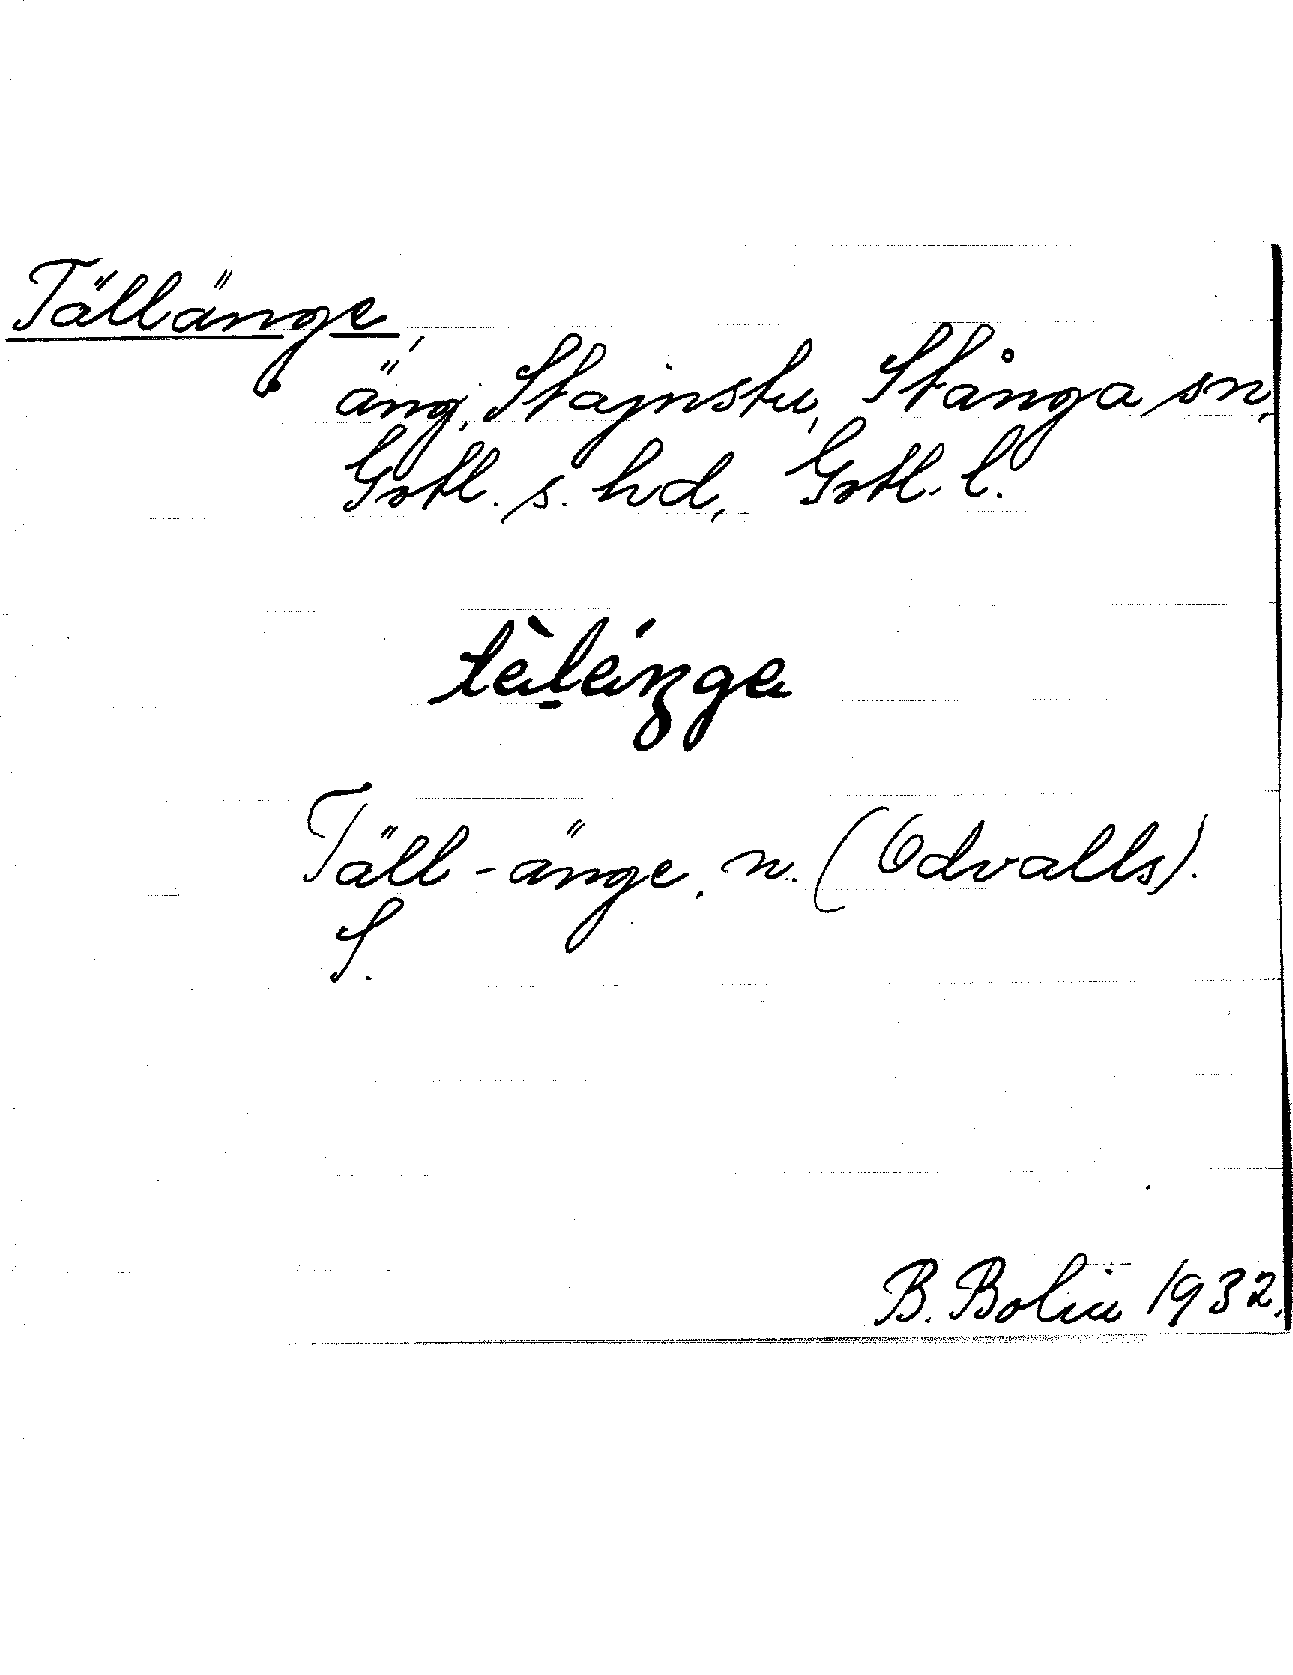 Tällänge,
äng, Stajnstu, Stånga sn,
Gotl. s. hd, Gotl. l.
tèlénga
Täll-änge, n. (Odvalls).
S.
B. Bolin 1932.